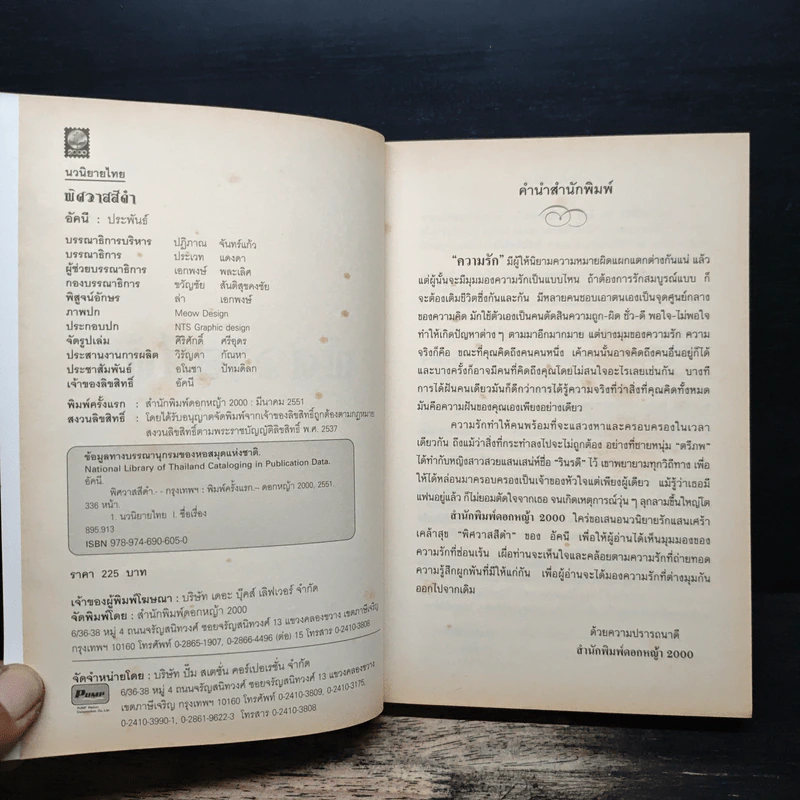 นวนิยายไทย
พิศวาสสีดำ
อัคนี : ประพันธ์
บรรณาธิการบริหาร ปฏิภาณ จันทร์แก้ว
บรรณาธิการ ประเวท แดงดา
ผู้ช่วยบรรณาธิการ เอกพงษ์ พละเลิศ
กองบรรณาธิการ ขวัญชัย สันติสุขคงชัย
พิสูจน์อักษร ล่า เอกพงษ์
ภาพปก Meow Design
ประกอบปก NTS Graphic design
จัดรูปเล่ม ศิริศักดิ์ ศรีอุดร
ประสานงานการผลิต วิรัญดา กัณหา
ประชาสัมพันธ์ อโนชา ปัทมดิลก
เจ้าของลิขสิทธิ์ อัคนี
พิมพ์ครั้งแรก : สำนักพิมพ์ดอกหญ้า 2000 : มีนาคม 2551
สงวนลิขสิทธิ์ : โดยได้รับอนุญาตจัดพิมพ์จากเจ้าของลิขสิทธิ์ถูกต้องตามกฎหมาย
สงวนลิขสิทธิ์ตามพระราชบัญญัติลิขสิทธิ์ พ.ศ. 2537
ข้อมูลทางบรรณานุกรมของหอสมุดแห่งชาติ.
National Library of Thailand Cataloging in Publication Data.
อัคนี.
พิศวาสสีดำ.- - กรุงเทพฯ : พิมพ์ครั้งแรก.-- ดอกหญ้า 2000, 2551.
336 หน้า.
1. นวนิยายไทย I. ชื่อเรื่อง
895.913
ISBN 978-974-690-605-0
ราคา 225 บาท
เจ้าของผู้พิมพ์โฆษณา : บริษัท เดอะ บุ๊คส์ เลิฟเวอร์ จำกัด
จัดพิมพ์โดย : สำนักพิมพ์ดอกหญ้า 2000
6/36-38 หมู่ 4 ถนนจรัญสนิทวงศ์ ซอยจรัญสนิทวงศ์ 13 แขวงคลองขวาง เขตภาษีเจริญ
กรุงเทพฯ 10160 โทรศัพท์ 0-2865-1907, 0-2866-4496 (ต่อ) 15 โทรสาร 0-2410-3808
จัดจำหน่ายโดย : บริษัท ปั๊ม สเตชั่น คอร์เปอเรชั่น จำกัด
PUMP
6/36-38 หมู่ 4 ถนนจรัญสนิทวงศ์ ซอยจรัญสนิทวงศ์ 13 แขวงคลองขวาง
เขตภาษีเจริญ กรุงเทพฯ 10160 โทรศัพท์ 0-2410-3809, 0-2410-3175,
0-2410-3990-1, 0-2861-9622-3 โทรสาร 0-2410-3808
คำนำสำนักพิมพ์
“ความรัก” มีผู้ให้นิยามความหมายผิดแผกแตกต่างกันแน่ แล้ว
แต่ผู้นั้นจะมีมุมมองความรักเป็นแบบไหน ถ้าต้องการรักสมบูรณ์แบบ ก็
จะต้องเติมชีวิตซึ่งกันและกัน มีหลายคนชอบเอาตนเองเป็นจุดศูนย์กลาง
ของความคิด มักใช้ตัวเองเป็นคนตัดสินความถูก-ผิด ชั่ว-ดี พอใจ-ไม่พอใจ
ทำให้เกิดปัญหาต่าง ๆ ตามมาอีกมากมาย แต่บางมุมของความรัก ความ
จริงก็คือ ขณะที่คุณคิดถึงคนคนหนึ่ง เค้าคนนั้นอาจคิดถึงคนอื่นอยู่ก็ได้
และบางครั้งก็อาจมีคนที่คิดถึงคุณโดยไม่สนใจอะไรเลยเช่นกัน บางที
การได้ฝันคนเดียวมันก็ดีกว่าการได้รู้ความจริงที่ว่าสิ่งที่คุณคิดทั้งหมด
มันคือความฝันของคุณเองเพียงอย่างเดียว
ความรักทำให้คนพร้อมที่จะแสวงหาและครอบครองในเวลา
เดียวกัน ถึงแม้ว่าสิ่งที่กระทำลงไปจะไม่ถูกต้อง อย่างที่ชายหนุ่ม “ตรีภพ”
ได้ทำกับหญิงสาวสวยแสนเสน่ห์ชื่อ “รินรตี” ไว้ เขาพยายามทุกวิถีทาง เพื่อ
ให้ได้หล่อนมาครอบครองเป็นเจ้าของหัวใจแต่เพียงผู้เดียว แม้รู้ว่าเธอมี
แฟนอยู่แล้ว ก็ไม่ยอมตัดใจจากเธอ จนเกิดเหตุการณ์วุ่น ๆ ลุกลามขึ้นใหญ่โต
สำนักพิมพ์ดอกหญ้า 2000 ใคร่ขอเสนอนวนิยายรักแสนเศร้า
เคล้าสุข “พิศวาสสีดำ” ของ อัคนี เพื่อให้ผู้อ่านได้เห็นมุมมองของ
ความรักที่ซ่อนเร้น เผื่อท่านจะเห็นใจและคล้อยตามความรักที่ถ่ายทอด
ความรู้สึกผูกพันที่มีให้แก่กัน เพื่อผู้อ่านจะได้มองความรักที่ต่างมุมกัน
ออกไปจากเดิม
ด้วยความปรารถนาดี
สำนักพิมพ์ดอกหญ้า 2000